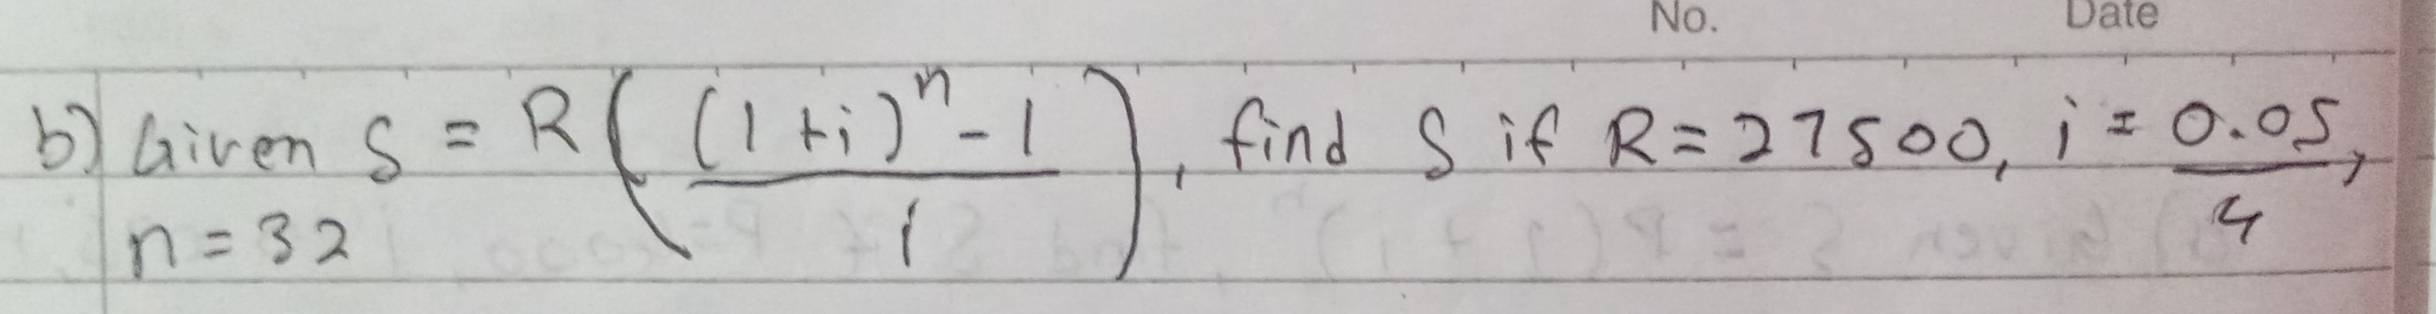 No. Date
b) Given S = R( ((1+i)^n - 1) / i ), find S if R = 27500, i = 0.05/4,
n = 32